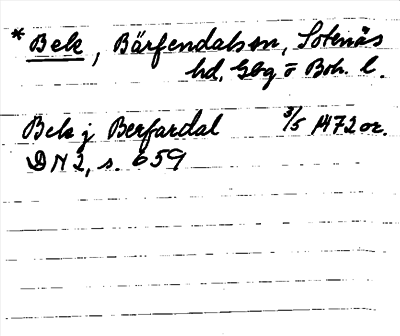 * Bek, Bärfendals sn, Sotenäs
hd, Gbg o Boh. l.
Bek j Berfardal 3/5 1472 or.
DN 2, s. 659